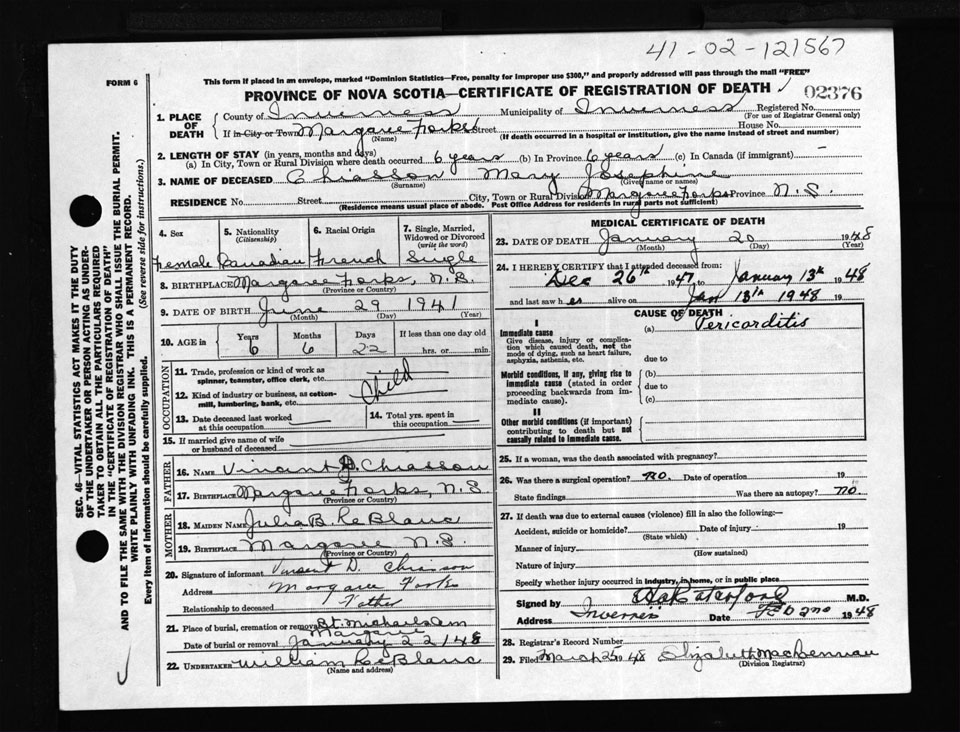 41-02-121567
FORM 6
This form if placed in an envelope, marked "Dominion Statistics—Free, penalty for improper use $300," and properly addressed will pass through the mail "FREE"
PROVINCE OF NOVA SCOTIA—CERTIFICATE OF REGISTRATION OF DEATH
02376
1. PLACE OF DEATH
County of Inverness Municipality of Inverness Registered No.
(For use of Registrar General only)
If in City or Town Margaree Forks Street House No.
(Name) (If death occurred in a hospital or institution, give the name instead of street and number)
2. LENGTH OF STAY (in years, months and days)
(a) In City, Town or Rural Division where death occurred 6 years (b) In Province 6 years (c) In Canada (if immigrant) —
3. NAME OF DECEASED Chiasson Mary Josephine
(Surname) (Given name or names)
RESIDENCE No. Street City, Town or Rural Division Margaree Forks Province N.S.
(Residence means usual place of abode. Post Office Address for residents in rural parts not sufficient)
4. Sex
Female
5. Nationality (Citizenship)
Canadian
6. Racial Origin
French
7. Single, Married, Widowed or Divorced (write the word)
Single
8. BIRTHPLACE Margaree Forks, N.S.
(Province or Country)
9. DATE OF BIRTH June 29 1941
(Month) (Day) (Year)
10. AGE in Years Months Days If less than one day old
6 6 22 hrs. or min.
OCCUPATION
11. Trade, profession or kind of work as spinner, teamster, office clerk, etc.
12. Kind of industry or business, as cotton-mill, lumbering, bank, etc.
Child
13. Date deceased last worked at this occupation
14. Total yrs. spent in this occupation
15. If married give name of wife or husband of deceased
FATHER
16. NAME Vincent D. Chiasson
17. BIRTHPLACE Margaree Forks, N.S.
(Province or Country)
MOTHER
18. MAIDEN NAME Julia B. LeBlanc
19. BIRTHPLACE Margaree N.S.
(Province or Country)
20. Signature of informant Vincent D. Chiasson
Address Margaree Forks
Relationship to deceased Father
21. Place of burial, cremation or removal St. Michaels Cem
Margaree
Date of burial or removal January 22/48
22. UNDERTAKER William LeBlanc
(Name and address)
MEDICAL CERTIFICATE OF DEATH
23. DATE OF DEATH January 20 1948
(Month) (Day) (Year)
24. I HEREBY CERTIFY that I attended deceased from:
Dec 26th 1947 to January 13th 1948
and last saw her alive on Jan 13th 1948 19
CAUSE OF DEATH
I
Immediate cause
Give disease, injury or complication which caused death, not the mode of dying, such as heart failure, asphyxia, asthenia, etc.
(a) Pericarditis
due to
Morbid conditions, if any, giving rise to immediate cause (stated in order proceeding backwards from immediate cause).
(b)
due to
(c)
II
Other morbid conditions (if important) contributing to death but not causally related to immediate cause.
25. If a woman, was the death associated with pregnancy?
26. Was there a surgical operation? no. Date of operation 19
State findings Was there an autopsy? no.
27. If death was due to external causes (violence) fill in also the following:—
Accident, suicide or homicide? Date of injury 19
(State which)
Manner of injury
(How sustained)
Nature of injury
Specify whether injury occurred in industry, in home, or in public place
Signed by M.D.
Inverness Date Feb 2nd 1948
28. Registrar's Record Number
29. Filed March 25 1948 Elizabeth MacLennan
(Division Registrar)
SEC. 46—VITAL STATISTICS ACT MAKES IT THE DUTY
OF THE UNDERTAKER OR PERSON ACTING AS UNDER-
TAKER TO OBTAIN ALL THE PARTICULARS REQUIRED
IN THE "CERTIFICATE OF REGISTRATION OF DEATH"
AND TO FILE THE SAME WITH THE DIVISION REGISTRAR WHO SHALL ISSUE THE BURIAL PERMIT.
WRITE PLAINLY WITH UNFADING INK. THIS IS A PERMANENT RECORD.
Every item of Information should be carefully supplied. (See reverse side for instructions.)